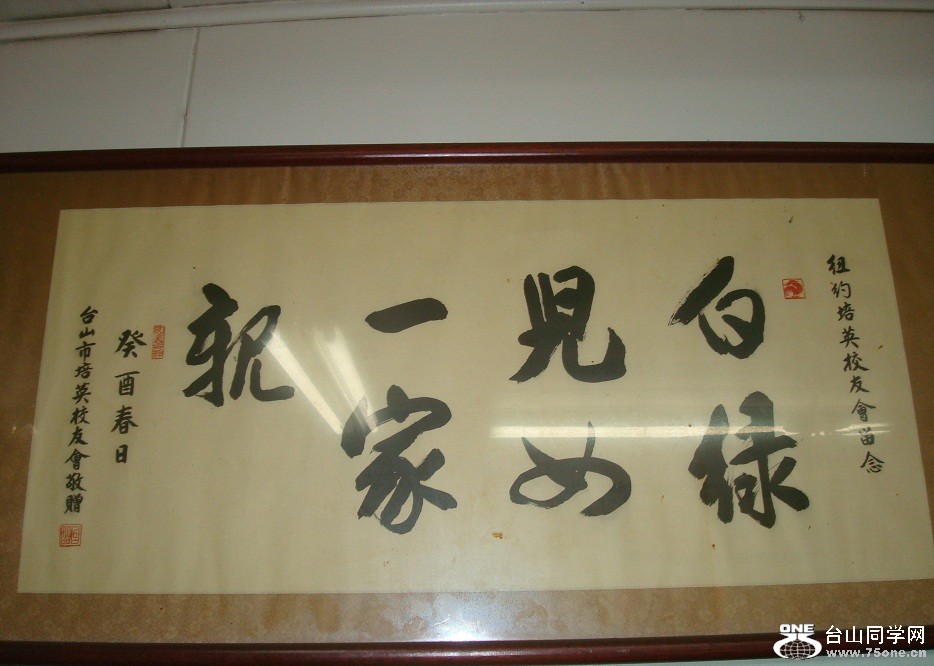 紐約培英校友會留念
白綠
兒女
一家
親
癸酉春日
台山市培英校友會敬贈
ONE 台山同学网
www.75one.cn